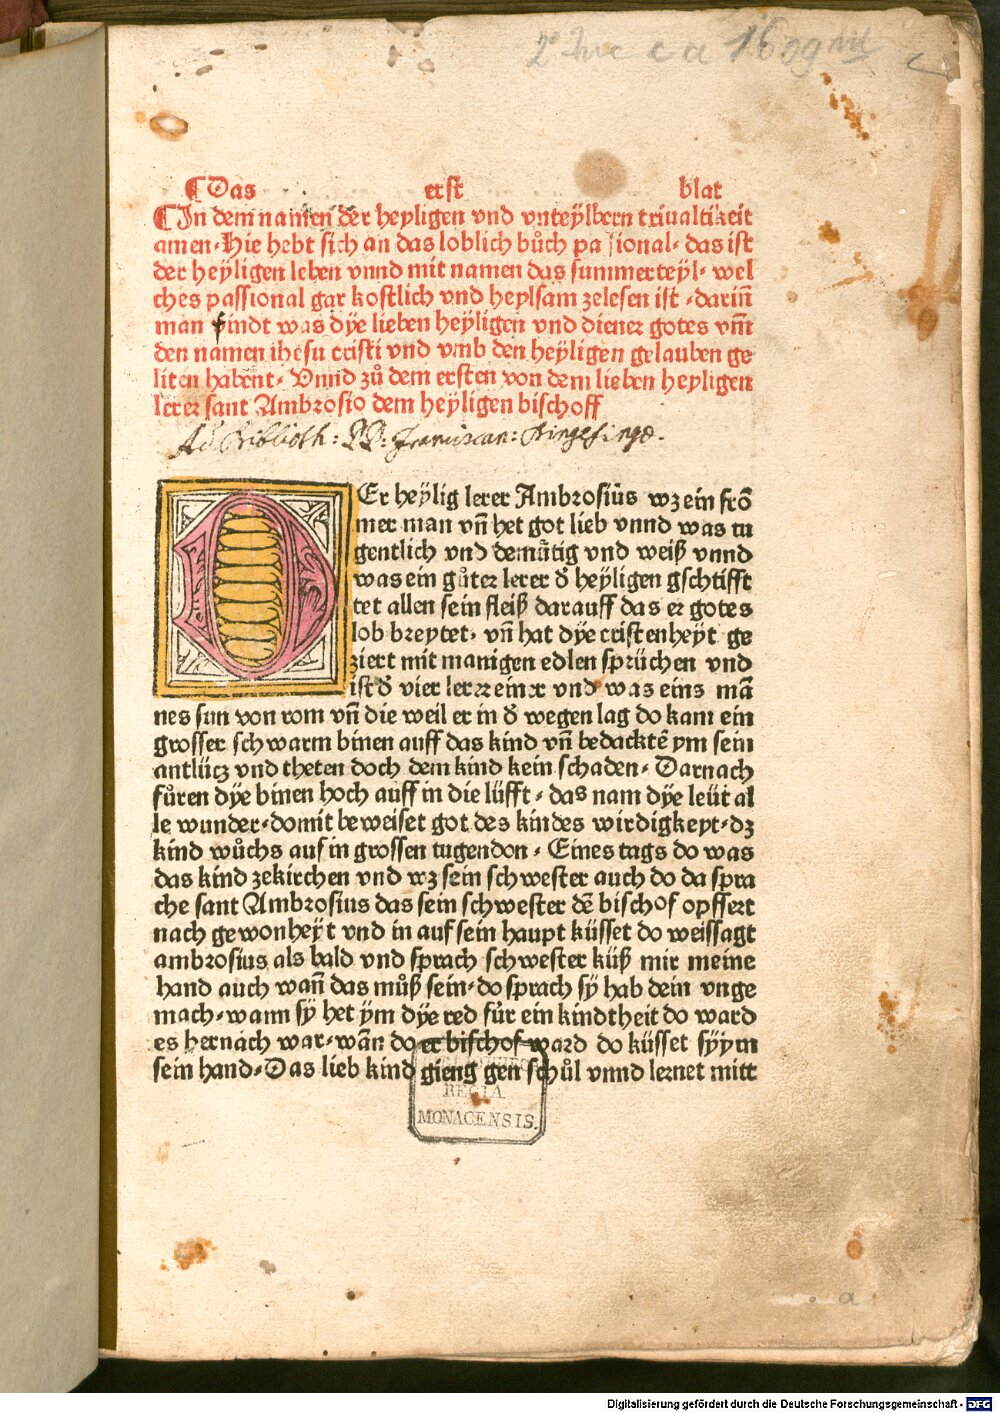 2° Inc c a 1609
¶Das erst blat
¶In dem namen der heyligen vnd vnteÿlbern triualtikeit
amen·Hie hebt sich an das loblich bůch pa sional· das ist
der heÿligen leben vnnd mit namen das summerteÿl· wel
ches passional gar kostlich vnd heylsam zelesen ist ·dariñ
man findt was dÿe lieben heÿligen vnd diener gotes vm̃
den namen ihesu cristi vnd vmb den heÿligen gelauben ge
liten habent· Vnnd zů dem ersten von dem lieben heyligen
lerer sant Ambrosio dem heÿligen bischoff
Ad Biblioth: PP: Franciscan:
DEr heÿlig lerer Ambrosius wz ein frõ
mer man vñ het got lieb vnnd was tu
gentlich vnd demütig vnd weiß vnnd
was ein gůter lerer d̕ heÿligen gschtifft
tet allen sein fleiß darauff das er gotes
lob breytet· vñ hat dÿe cristenheÿt ge
ziert mit manigen edlen sprüchen vnd
ist d̕ vier lerer einer vnd was eins mã
nes sun von rom vñ die weil er in d̕ wegen lag do kam ein
grosser schwarm binen auff das kind vñ bedacktẽ ym sein
antlücz vnd theten doch dem kind kein schaden· Darnach
fůren dÿe binen hoch auff in die lüfft · das nam dÿe leüt al
le wunder·domit beweiset got des kindes wirdigkeyt·dz
kind wůchs auf in grossen tugendon · Eines tags do was
das kind zekirchen vnd wz sein schwester auch do da spra
che sant Ambrosius das sein schwester dẽ bischof opffert
nach gewonheÿt vnd in auf sein haupt küsset do weissagt
ambrosius als bald vnd sprach schwester küß mir meine
hand auch wañ das můß sein·do sprach sÿ hab dein vnge
mach·wann sÿ het ÿm dÿe red fůr ein kindtheit do ward
es hernach war·wãn do er bischof ward do küsset sÿ ÿm
sein hand·Das lieb kind gieng gen schůl vnnd lernet mitt
BIBLIOTHECA
REGIA
MONACENSIS.
a
Digitalisierung gefördert durch die Deutsche Forschungsgemeinschaft - DFG